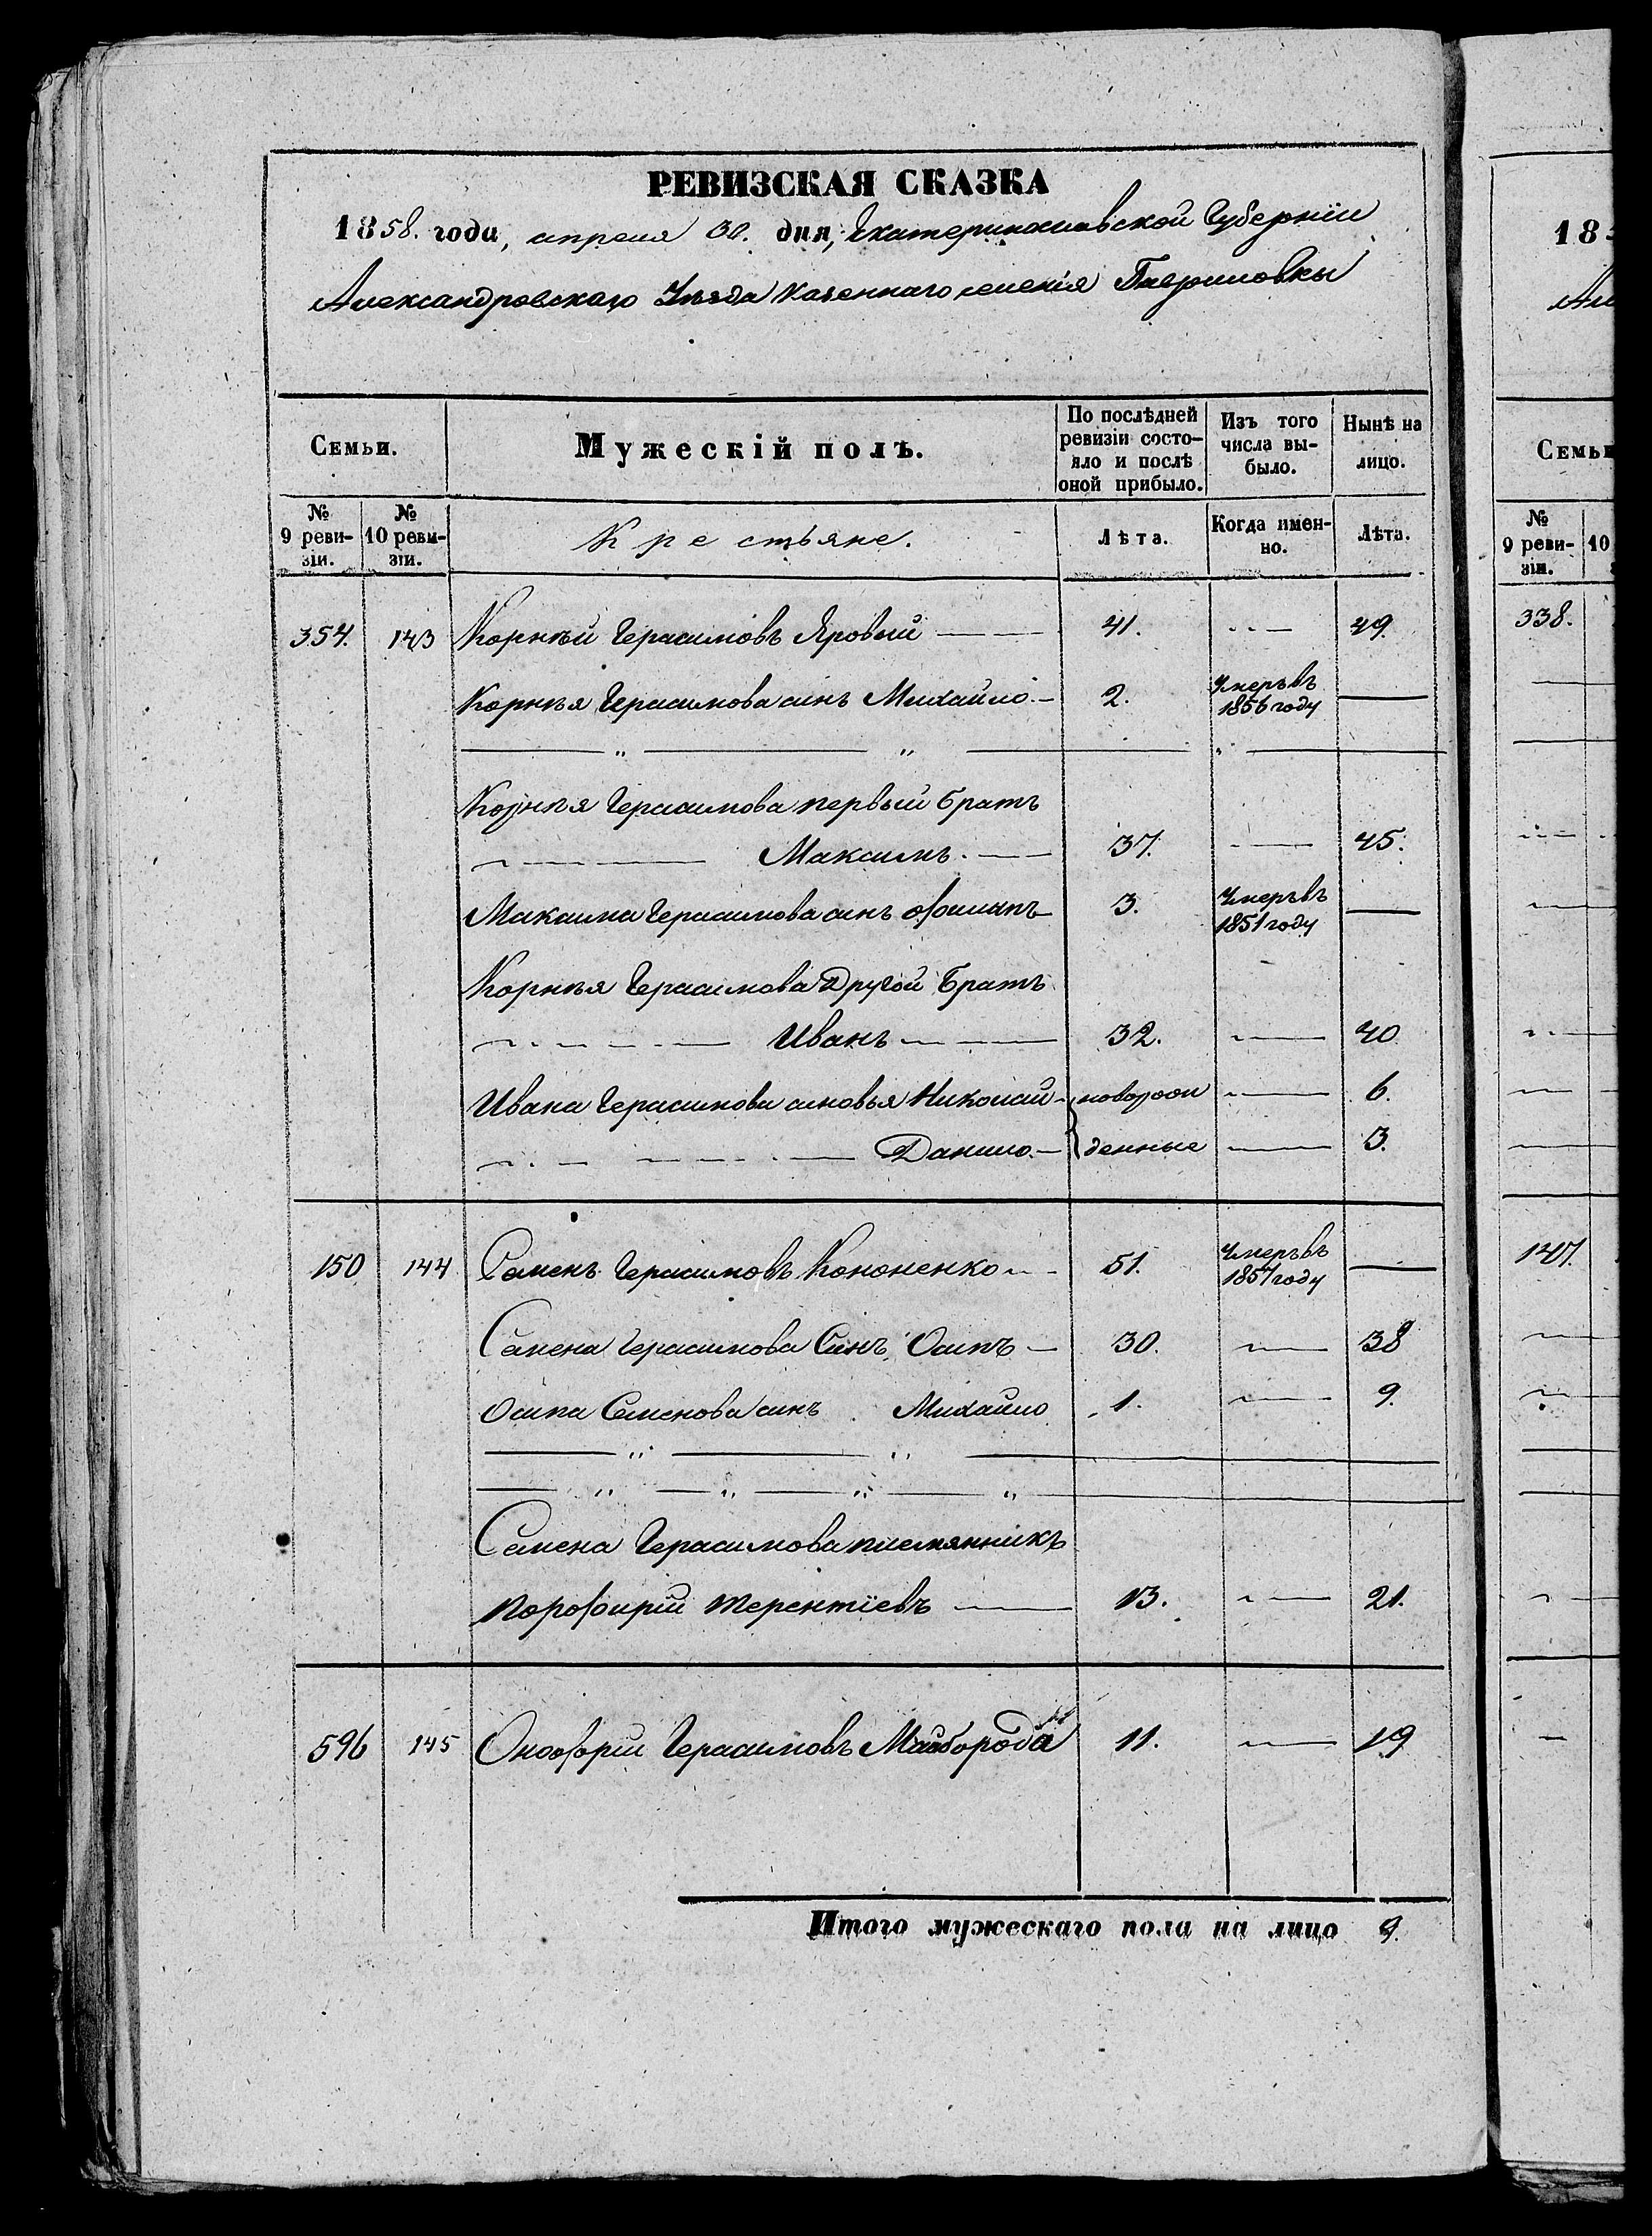 РЕВИЗСКАЯ СКАЗКА
1858. года, апреля 30. дня, Екатеринославской Губернїи
Александровскаго Уѣзда казеннаго селенія Гавриловки
Семьи.
Мужескій полъ.
По послѣдней ревизіи состо-яло и послѣ оной прибыло.
Изъ того числа вы-было.
Нынѣ на лицо.
№ 9 реви-зіи.
№ 10 реви-зіи.
Крестьяне.
Лѣта.
Когда имен-но.
Лѣта.
354. 143 Корнѣй Герасимовъ Яровый 41. 49.
Корнѣя Герасимова синъ Михайло 2. Умеръ въ 1856 году
Корнѣя Герасимова первый братъ
Максимъ. 37. 45.
Максима Герасимова синъ 3. Умеръ въ 1851 году
Корнѣя Герасимова Другой Братъ
Иванъ 32. 40
Ивана Герасимова синовья Николай новорож 6.
Данило. денные 3.
150 144 Семенъ Герасимовъ Кононенко 51. Умеръ въ 1857 году
Семена Герасимова Синъ Осипъ 30. 38
Осипа Семенова синъ Михайло 1. 9.
Семена Герасимова племянникъ
Порфирій Терентїевъ 13. 21.
596 145 Онофрій Герасимовъ Майборода 11. 19
Итого мужескаго пола на лицо 9.
18
Семьи
№ 9 реви-зіи.
10
338.
147.